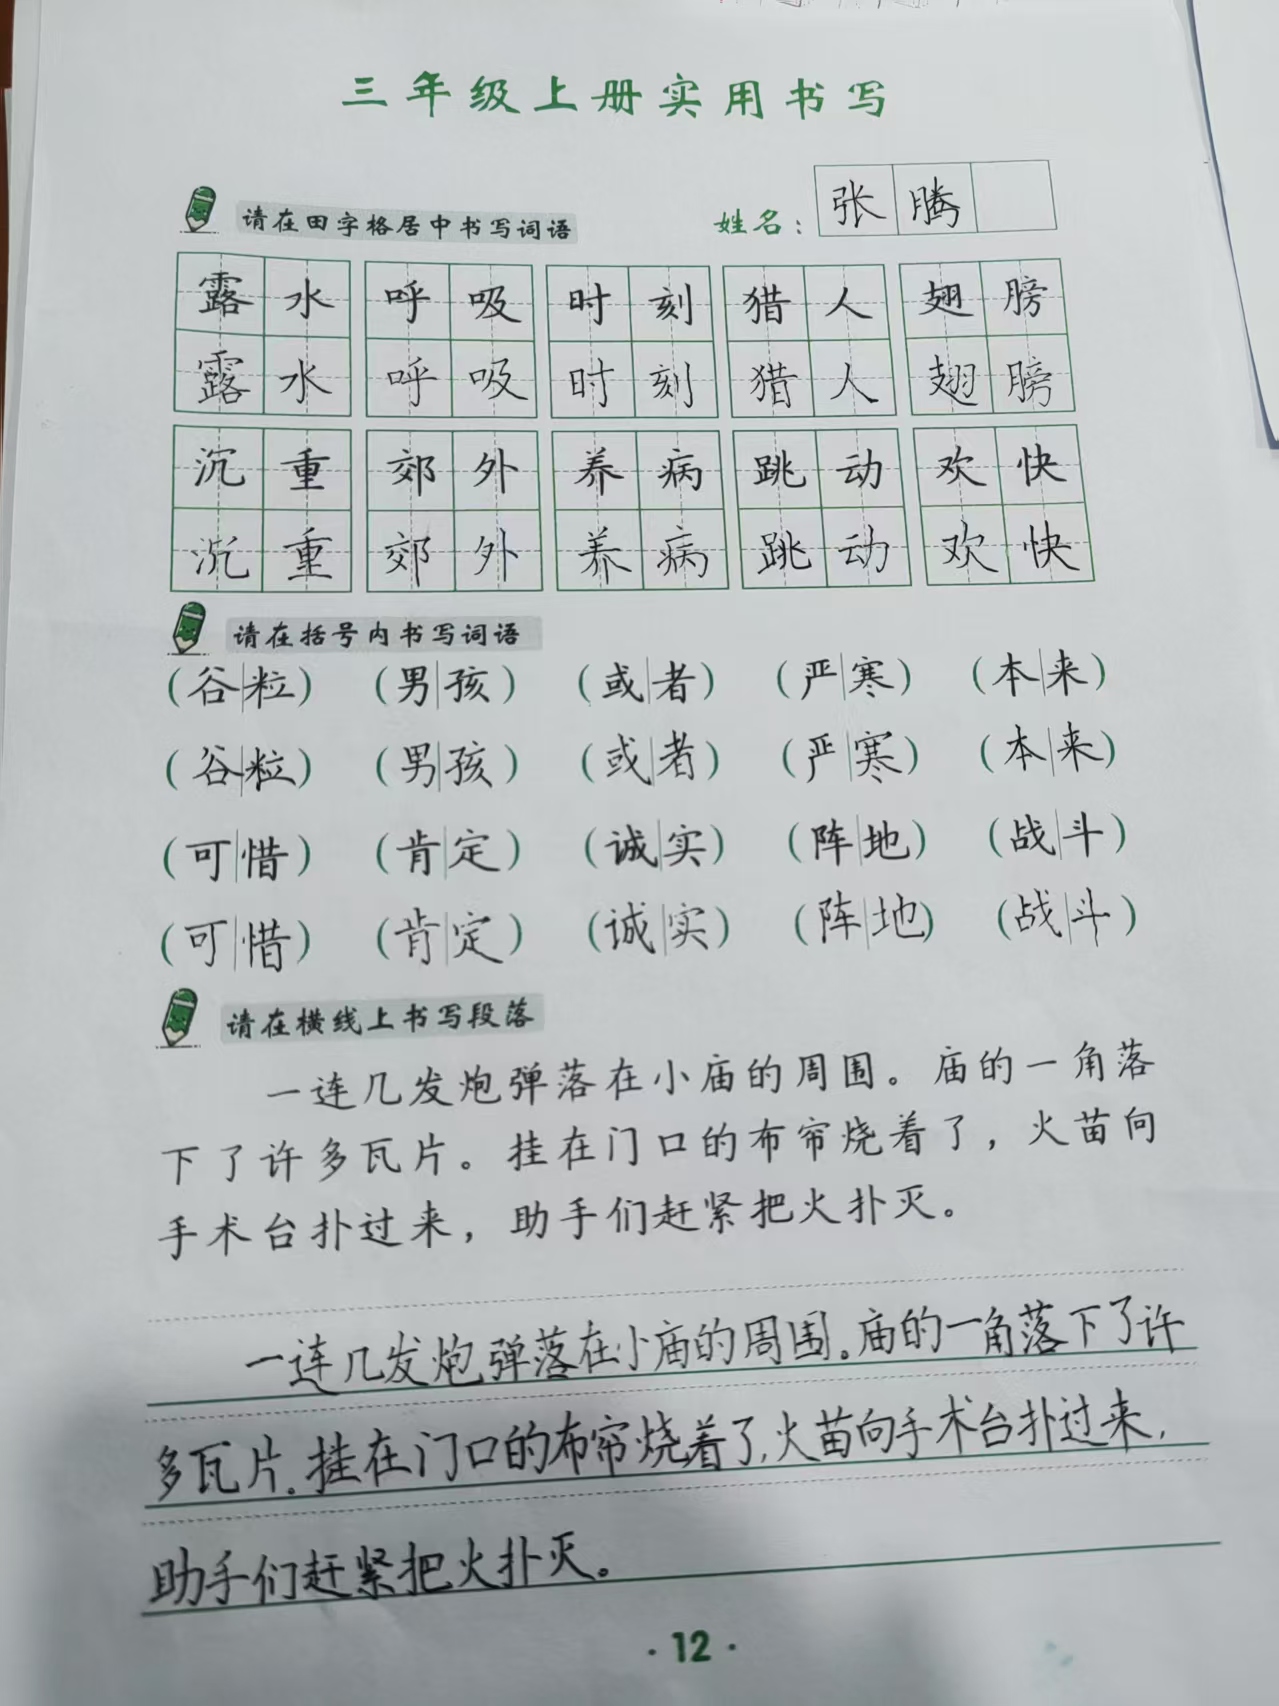 三年级上册实用书写
请在田字格居中书写词语 姓名： 张腾
露水 呼吸 时刻 猎人 翅膀
露水 呼吸 时刻 猎人 翅膀
沉重 郊外 养病 跳动 欢快
沉重 郊外 养病 跳动 欢快
请在括号内书写词语
（谷|粒） （男|孩） （或|者） （严|寒） （本|来）
（谷|粒） （男|孩） （或|者） （严|寒） （本|来）
（可|惜） （肯|定） （诚|实） （阵|地） （战|斗）
（可|惜） （肯|定） （诚|实） （阵|地） （战|斗）
请在横线上书写段落
一连几发炮弹落在小庙的周围。庙的一角落
下了许多瓦片。挂在门口的布帘烧着了，火苗向
手术台扑过来，助手们赶紧把火扑灭。
一连几发炮弹落在小庙的周围。庙的一角落下了许
多瓦片。挂在门口的布帘烧着了，火苗向手术台扑过来，
助手们赶紧把火扑灭。
·12·